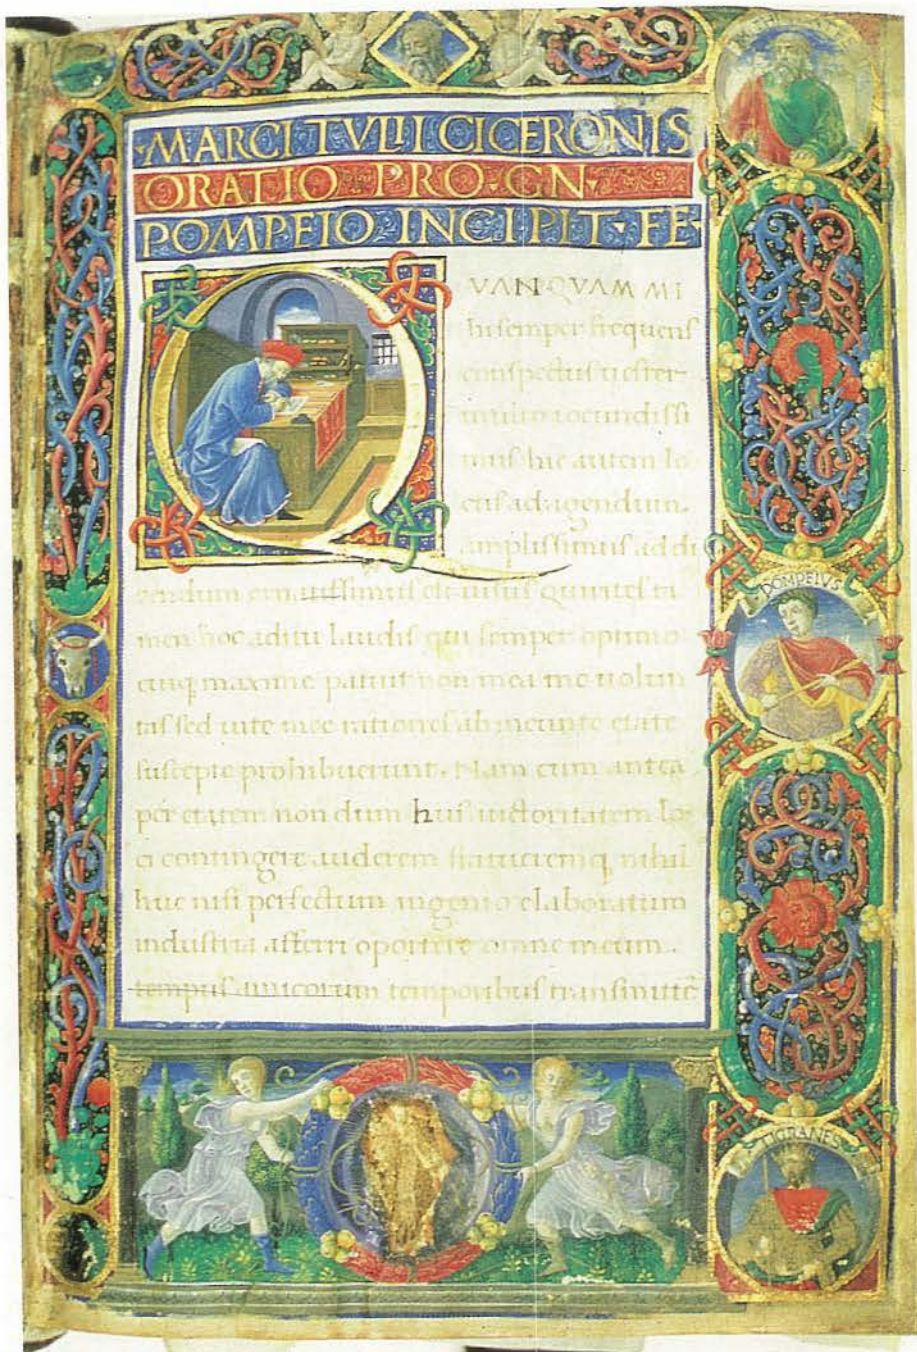 MARCI TVLII CICERONIS
ORATIO PRO·GN·
POMPEIO·INCIPIT·FE·
QVANQVAM MI
hi semper frequens
conspectus uester
multo iocundissi
mus hic autem lo
cus ad agendum
amplissimus ad di
cendum ornatissimus est uisus quirites ta
men hoc aditu laudis qui semper optimo
cuiq maxime patuit non mea me uolun
tas sed uite mee rationes ab ineunte etate
suscepte prohibuerunt. Nam cum antea
per etatem non dum hui auctoritatem lo
ci contingere auderem statueremq nihil
huc nisi perfectum ingenio elaboratum
industria afferri oportere omne meum
tempus amicorum temporibus transmittē
POMPEIVS
TIGRANES